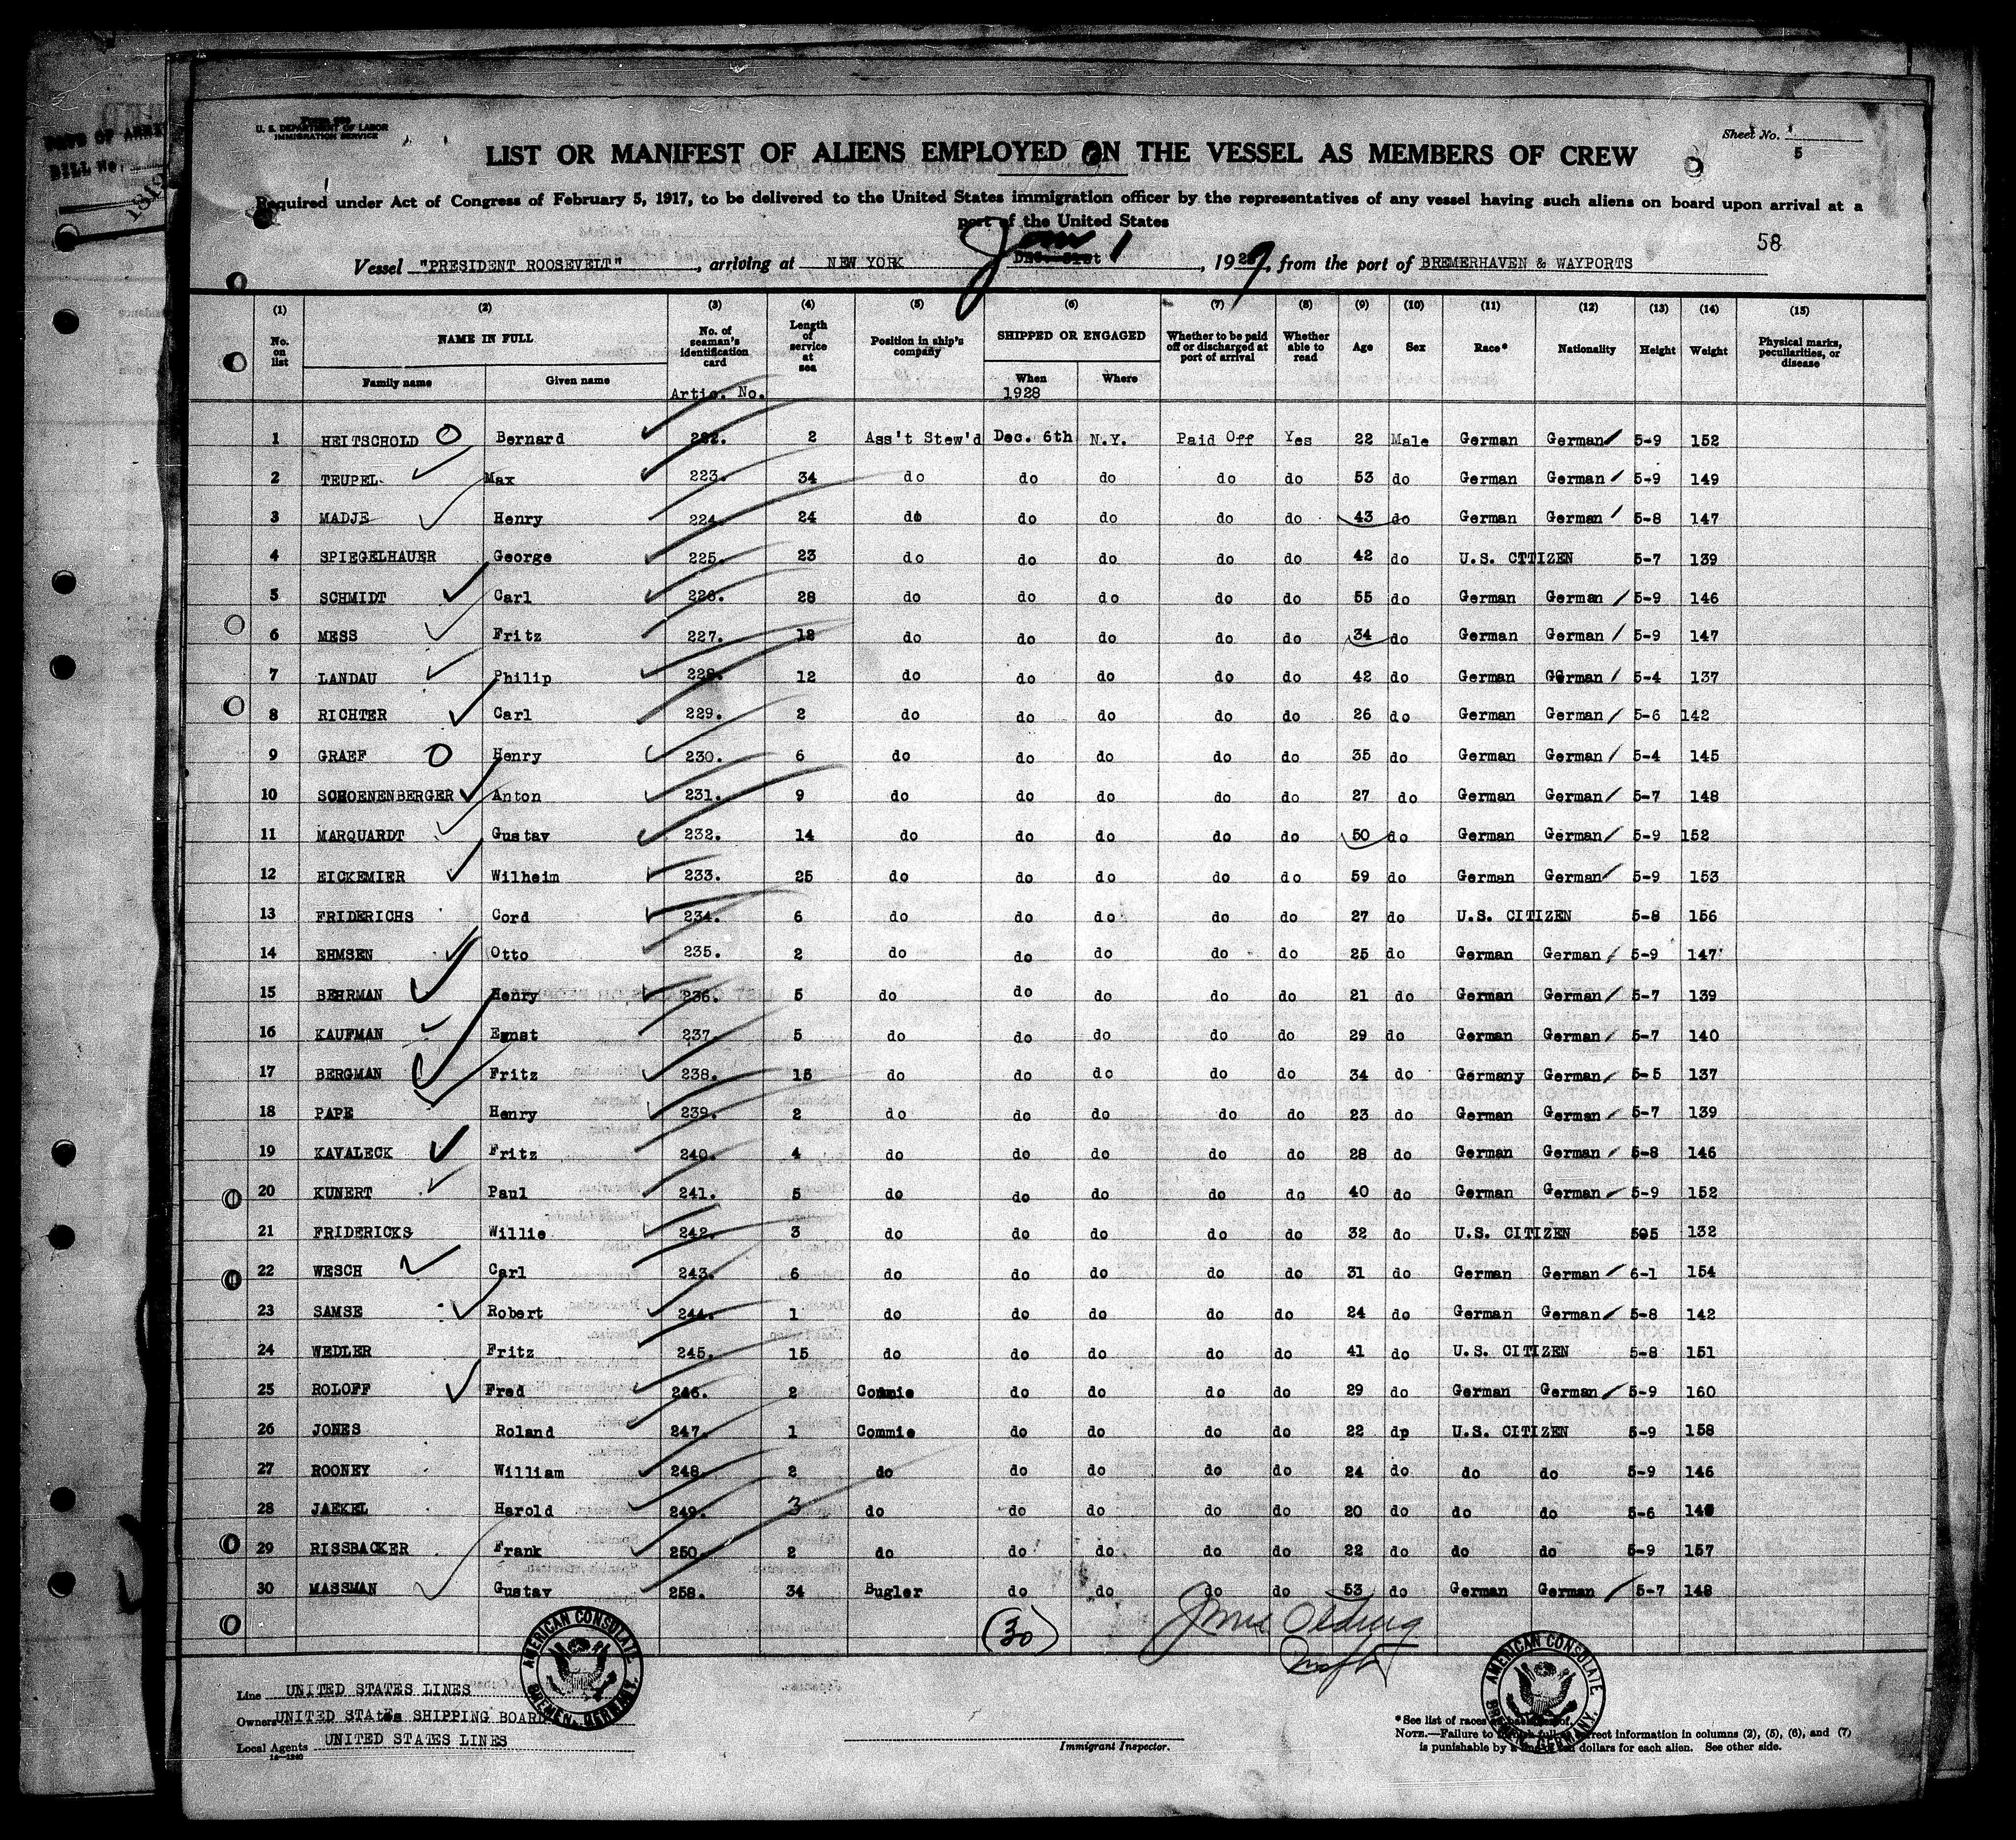 PORT OF
BILL No.
1819
Form 689
U. S. DEPARTMENT OF LABOR
IMMIGRATION SERVICE
Sheet No.
5
LIST OR MANIFEST OF ALIENS EMPLOYED ON THE VESSEL AS MEMBERS OF CREW
Required under Act of Congress of February 5, 1917, to be delivered to the United States immigration officer by the representatives of any vessel having such aliens on board upon arrival at a
port of the United States
58
Vessel "PRESIDENT ROOSEVELT", arriving at NEW YORK DEC. 31st Jan 1, 1929, from the port of BREMERHAVEN & WAYPORTS
(1) (2) (3) (4) (5) (6) (7) (8) (9) (10) (11) (12) (13) (14) (15)
No. on list NAME IN FULL No. of seaman's identification card Length of service at sea Position in ship's company SHIPPED OR ENGAGED Whether to be paid off or discharged at port of arrival Whether able to read Age Sex Race* Nationality Height Weight Physical marks, peculiarities, or disease
Family name Given name When Where
Artic. No. 1928
1 HEITSCHOLD O Bernard 222. 2 Ass't Stew'd Dec. 6th N.Y. Paid Off Yes 22 Male German German 5-9 152
2 TEUPEL Max 223. 34 do do do do do 53 do German German 5-9 149
3 MADJE Henry 224. 24 do do do do do 43 do German German 5-8 147
4 SPIEGELHAUER George 225. 23 do do do do do 42 do U.S. CTTIZEN 5-7 139
5 SCHMIDT Carl 226. 28 do do do do do 55 do German German 5-9 146
6 MESS Fritz 227. 12 do do do do do 34 do German German 5-9 147
7 LANDAU Philip 228. 12 do do do do do 42 do German German 5-4 137
8 RICHTER Carl 229. 2 do do do do do 26 do German German 5-6 142
9 GRAEF O Henry 230. 6 do do do do do 35 do German German 5-4 145
10 SCHOENENBERGER Anton 231. 9 do do do do do 27 do German German 5-7 148
11 MARQUARDT Gustav 232. 14 do do do do do 50 do German German 5-9 152
12 EICKEMIER Wilheim 233. 25 do do do do do 59 do German German 5-9 153
13 FRIDERICHS Cord 234. 6 do do do do do 27 do U.S. CITIZEN 5-8 156
14 EHMSEN Otto 235. 2 do do do do do 25 do German German 5-9 147
15 BEHRMAN Henry 236. 5 do do do do do 21 do German German 5-7 139
16 KAUFMAN Ernst 237. 5 do do do do do 29 do German German 5-7 140
17 BERGMAN Fritz 238. 15 do do do do do 34 do Germany German 5-5 137
18 PAPE Henry 239. 2 do do do do do 23 do German German 5-7 139
19 KAVALECK Fritz 240. 4 do do do do do 28 do German German 5-8 146
20 KUNERT Paul 241. 5 do do do do do 40 do German German 5-9 152
21 FRIDERICKS Willie 242. 3 do do do do do 32 do U.S. CITIZEN 505 132
22 WESCH Carl 243. 6 do do do do do 31 do German German 6-1 154
23 SAMSE Robert 244. 1 do do do do do 24 do German German 5-8 142
24 WEDLER Fritz 245. 15 do do do do do 41 do U.S. CITIZEN 5-8 151
25 ROLOFF Fred 246. 2 Commie do do do do 29 do German German 5-9 160
26 JONES Roland 247. 1 Commie do do do do 22 dp U.S. CITIZEN 5-9 158
27 ROONEY William 248. 2 do do do do do 24 do do do 5-9 146
28 JAEKEL Harold 249. 3 do do do do do 20 do do do 5-6 140
29 RISSBACKER Frank 250. 2 do do do do do 22 do do do 5-9 157
30 MASSMAN Gustav 258. 34 Bugler do do do do 53 do German German 5-7 148
(30)
Master
AMERICAN CONSULATE
BREMEN, GERMANY.
AMERICAN CONSULATE
BREMEN, GERMANY.
Line UNITED STATES LINES
Owners UNITED STAtes SHIPPING BOARD
Local Agents UNITED STATES LINES
Immigrant Inspector.
*See list of races on back hereof.
NOTE.—Failure to furnish full or correct information in columns (2), (5), (6), and (7)
is punishable by a fine of ten dollars for each alien. See other side.